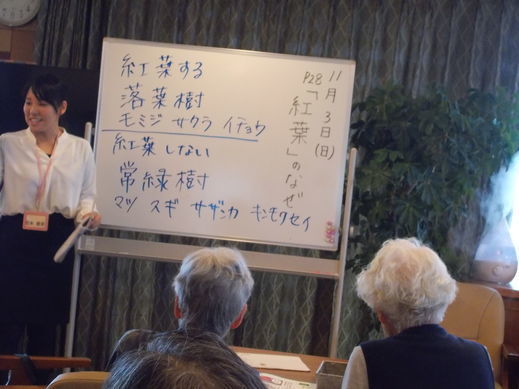 11月3日(日)
P28「紅葉」のなぜ
紅葉する
落葉樹
モミジ サクラ イチョウ
紅葉しない
常緑樹
マツ スギ サザンカ キンモクセイ